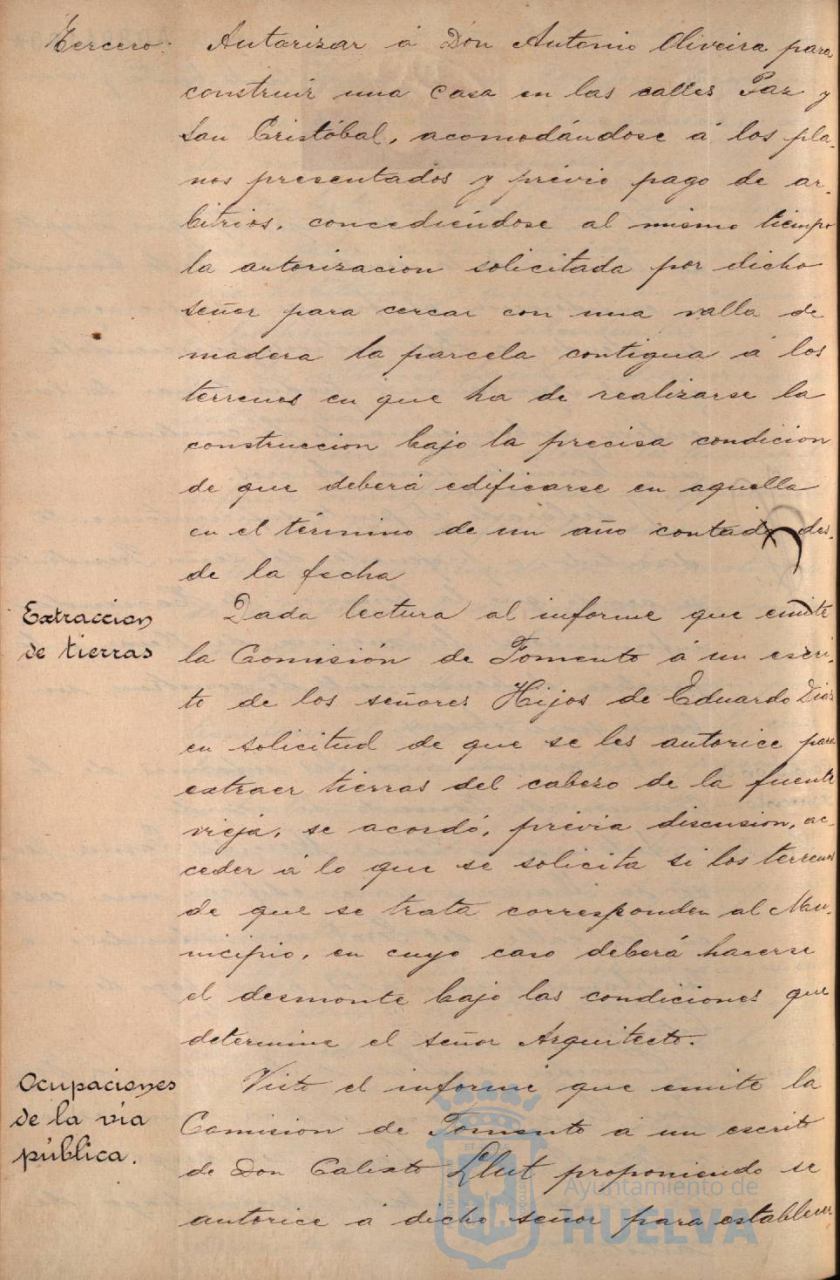 Tercero: Autorizar á Don Antonio Oliveira para
construir una casa en las calles Paz y
San Cristóbal, acomodándose á los pla-
nos presentados y prévio pago de ar-
bitrios, concediéndose al mismo tiempo
la autorizacion solicitada por dicho
señor para cercar con una valla de
madera la parcela contigua á los
terrenos en que ha de realizarse la
construccion bajo la precisa condicion
de que deberá edificarse en aquella
en el término de un año contado des-
de la fecha
Extraccion
de tierras
Dada lectura al informe que emite
la Comisión de Fomento á un escri-
to de los señores Hijos de Eduardo Diaz
en solicitud de que se les autorice para
extraer tierras del cabezo de la fuente
vieja, se acordó, prévia discusion, ac-
ceder á lo que se solicita si los terrenos
de que se trata corresponden al Mu-
nicipio, en cuyo caso deberá hacerse
el desmonte bajo las condiciones que
determine el señor Arquitecto.
Ocupaciones
de la vía
pública.
Visto el informe que emite la
Comision de Fomento á un escrito
de Don Calixto Llut proponiendo se
autorice á dicho señor para establecer
Ayuntamiento de
HUELVA